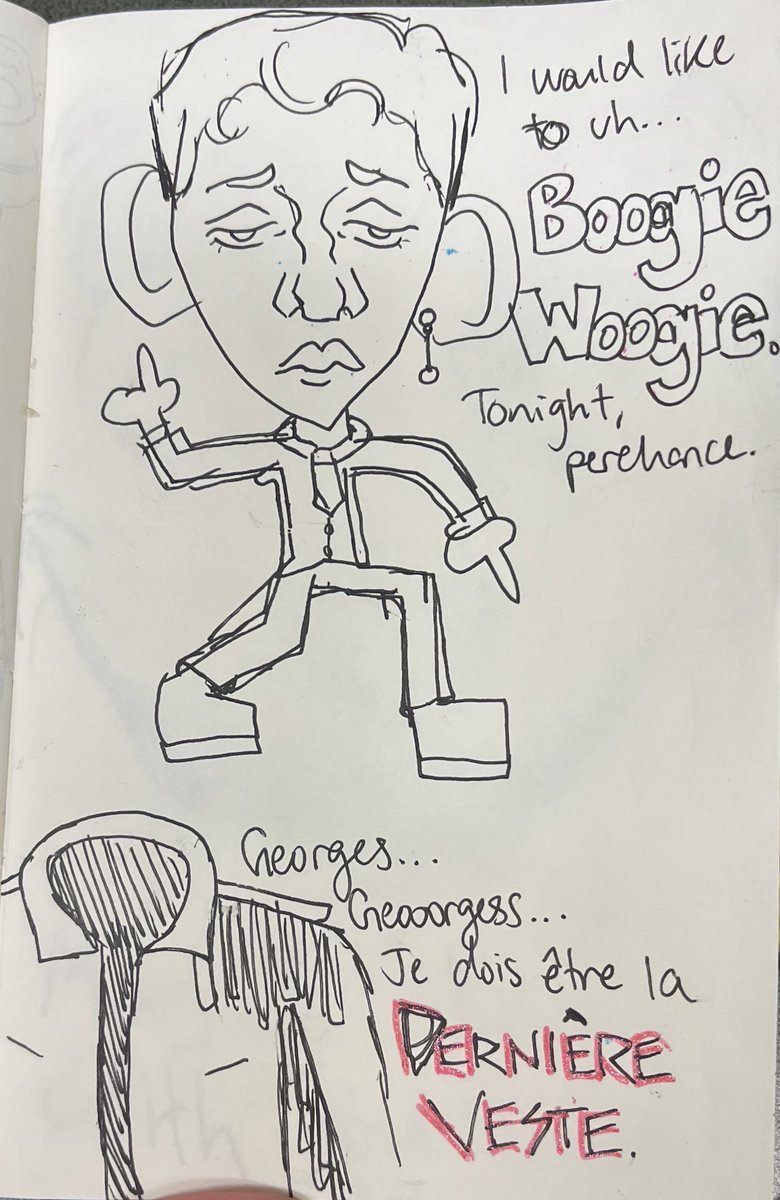 I would like
to uh...
Boogie
Woogie.
Tonight,
perchance.
Georges...
Geooorgess...
Je dois être la
DERNIÊRE
VESTE.